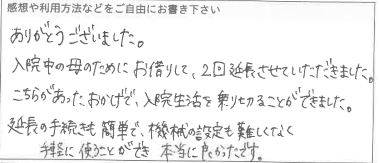 感想や利用方法などをご自由にお書き下さい
ありがとうございました。
入院中の母のためにお借りして、2回延長させていただきました。
こちらがあったおかげで、入院生活を乗り切ることができました。
延長の手続きも簡単で、機械の設定も難しくなく
手軽に使うことができ 本当に良かったです。